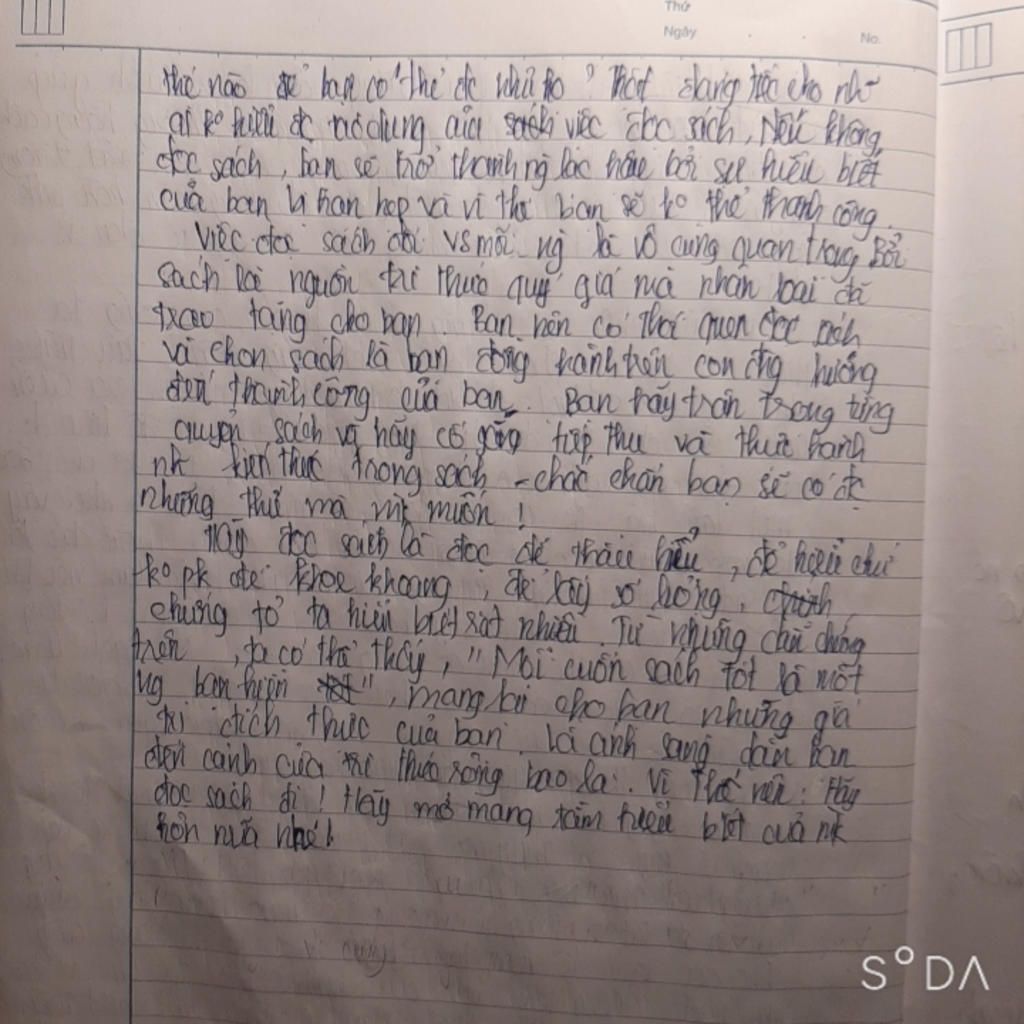 Thứ
Ngày
No.
thế nào để bạn có thể đc như họ? Thật đáng tiếc cho nh~
ai ko hiểu đc tác dụng của sách việc đọc sách. Nếu không
đọc sách, bạn sẽ trở thành ng lạc hậu bởi sự hiểu biết
của bạn bị hạn hẹp và vì thế bạn sẽ ko thể thành công.
Việc đọc sách đối vs mỗi ng là vô cùng quan trọng. Bởi
sách là nguồn tri thức quý giá mà nhân loại đã
trao tặng cho bạn. Bạn nên có thói quen đọc sách
và chọn sách là bạn đồng hành trên con đg hướng
đến thành công của bạn. Bạn hãy trân trọng từng
quyển sách và hãy cố gắng tiếp thu và thực hành
kiến thức trong sách - chắc chắn bạn sẽ có đc
những thứ mà mk muốn!
Hãy đọc sách là đọc để thấu hiểu, để hiểu chứ
ko pk để khoe khoang, để lấy số lượng,
chứng tỏ ta hiểu biết rất nhiều. Từ những dẫn chứng
trên, ta có thể thấy, "Mỗi cuốn sách tốt là một
ng bạn hiền", mang lại cho bạn những giá
trị đích thực của bạn, là ánh sáng dẫn bạn
đến cánh cửa tri thức rộng bao la. Vì thế nên: Hãy
đọc sách đi! Hãy mở mang tầm hiểu biết của mk
hơn nữa nhé!
SODA